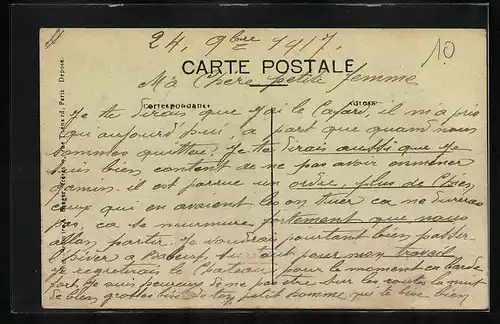 24, 9bre 1917,
10
CARTE POSTALE
Ma Chere petite femme
Correspondance
Adresse
Je te dirais que j'ai le Cafard, il m'a pris
qu'aujourd'hui, a part que quand nous
sommes quitter. Je te dirais aussi que je
suis bien content de ne pas avoir enmener
gamin. il est parrue un ordre plus de Chien
ceux qui en avaient les on tuer ca ne durerais
pas, ca se murmure fortement que nous
allon partir. Je voudrais pourtant bien passer
l'hiver a Babeuf, surtout pour mon travail
je regreterais le Chateau, pour le moment ca barde
fort. Je suis heureux de ne pas être sur les routes la nuit
de bien grosses bises de ton petit homme qui te bise bien
Paris Déposé.